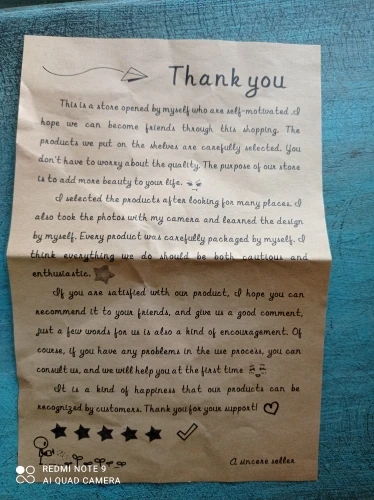 Thank you
This is a store opened by myself who are self-motivated .I
hope we can become friends through this shopping. The
products we put on the shelves are carefully selected. You
don't have to worry about the quality. The purpose of our store
is to add more beauty to your life.
I selected the products after looking for many places. I
also took the photos with my camera and learned the design
by myself. Every product was carefully packaged by myself. I
think everything we do should be both cautious and
enthusiastic.
If you are satisfied with our product, I hope you can
recommend it to your friends, and give us a good comment,
just a few words for us is also a kind of encouragement. Of
course, if you have any problems in the use process, you can
consult us, and we will help you at the first time
It is a kind of happiness that our products can be
recognized by customers. Thank you for your support!
A sincere seller
REDMI NOTE 9
AI QUAD CAMERA